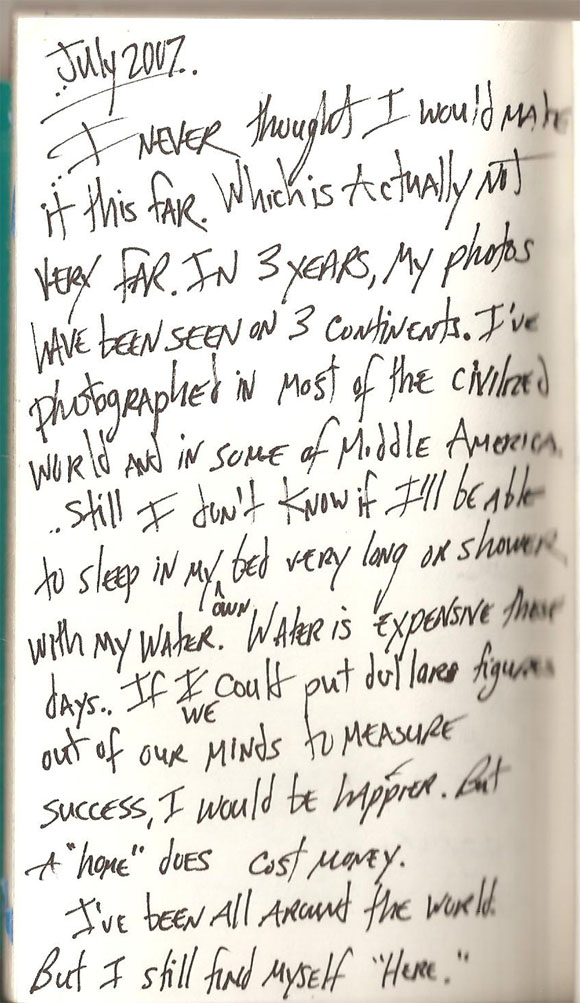 July 2007..
..I NEVER thought I would MAKE
it this FAR. Which is Actually NOT
VERY FAR. IN 3 YEARS, My photos
HAVE been SEEN ON 3 CONTINENTS. I've
photographed iN Most of the Civilized
World AND iN SOME of Middle AMERICA.
..Still I don't KNOW if I'll be Able
to sleep iN My OWN bed VERY long OR SHOWER
with My WATER. WATER is EXPENSIVE these
days.. If I WE Could put dollars figures
out of OUR MINDS to MEASURE
SUCCESS, I would be happier. But
A "home" DOES COST MONEY.
I've been All AROUND the World.
But I still find Myself "HERE."